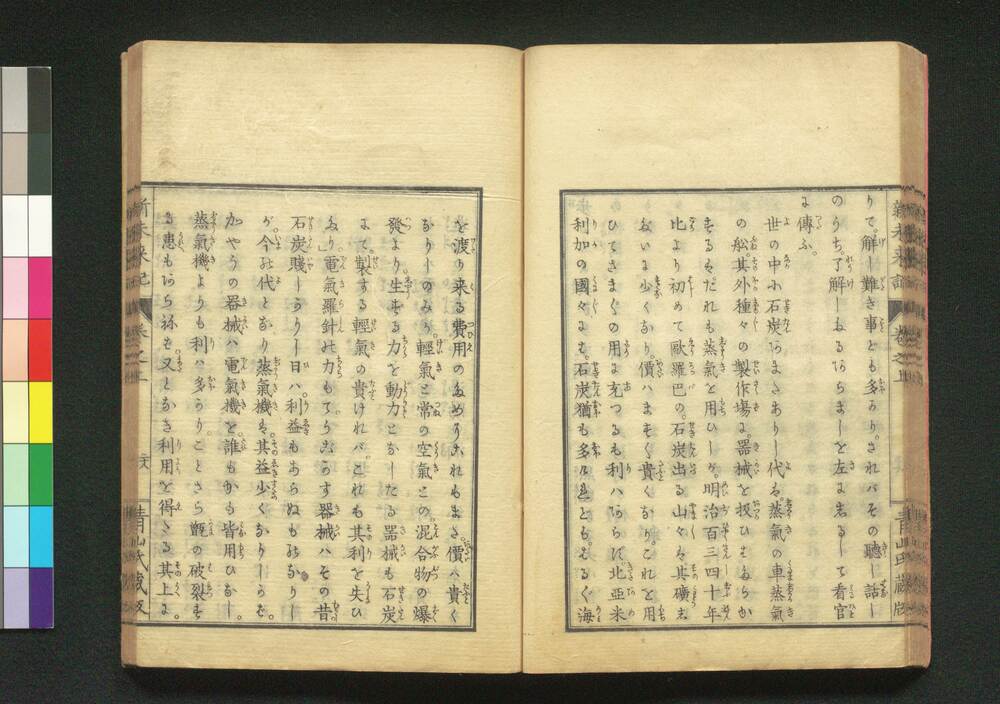 りて。解し難き事ども多かり。されバその聽し話し
のうち了解しねるあらましを左に志るして看官
に傳ふ。
世の中小石炭あまたありし代ハ。蒸氣の車蒸氣
の舩。其外種々の製作場に。器械を扱ひはたらか
するハ。だれも蒸氣を用ひしが。明治百三四十年
比より初めて歐羅巴の。石炭出る山々も其礦志
おいに少くなり。價ハます〱貴くなりこれを用
ひてさま〲の用に充つるも利ハあらじ。北亜米
利加の國々にも。石炭猶も多かれども。はるぐ海
を渡り来る費用のためにこれもまた。價ハ貴く
なりしのみか。輕氣と常の空氣との混合物の爆
發より。生ずる力を動力となしたる器械も石炭
にて。製する輕氣の貴けれバ。これも其利を失ひ
たり。電氣羅針の力もてうごかす器械ハその昔
石炭賤しかりし日ハ。利益もあらぬものなりし
が。今の代となり蒸氣機も。其益少くなりしかば。
加やうの器械ハ電氣機を。誰もかも皆用ひたり。
蒸氣機よりも利ハ多かりことさら甑の破裂す
る患もあらねば。又となき利用を得たる其上に。
新未来記
卷之上
青山氏藏版
新未来記
卷之上
六
青山氏藏版